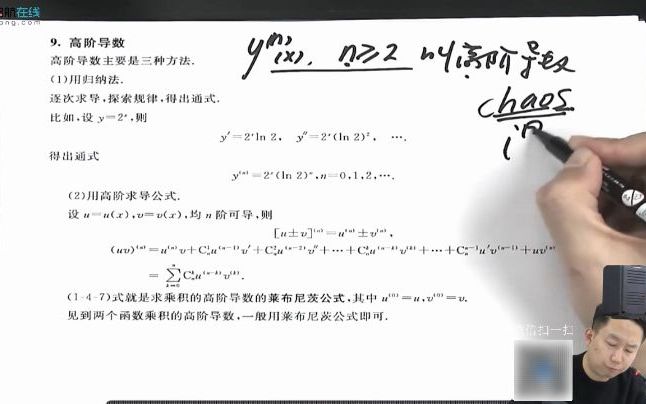 航在线
9. 高阶导数
y⁽ⁿ⁾(x), n≥2 高阶导数
高阶导数主要是三种方法.
(1)用归纳法.
chaos
逐次求导,探索规律,得出通式.
比如,设 y=2ˣ,则
y′=2ˣln 2, y″=2ˣ(ln 2)², ….
得出通式
y⁽ⁿ⁾=2ˣ(ln 2)ⁿ,n=0,1,2,….
(2)用高阶求导公式.
设 u=u(x),v=v(x),均 n 阶可导,则
[u±v]⁽ⁿ⁾=u⁽ⁿ⁾±v⁽ⁿ⁾,
(uv)⁽ⁿ⁾=u⁽ⁿ⁾v+C¹ₙu⁽ⁿ⁻¹⁾v′+C²ₙu⁽ⁿ⁻²⁾v″+…+Cᵏₙu⁽ⁿ⁻ᵏ⁾v⁽ᵏ⁾+…+Cⁿ⁻¹ₙu′v⁽ⁿ⁻¹⁾+uv⁽ⁿ⁾
=∑ₖ₌₀ⁿCᵏₙu⁽ⁿ⁻ᵏ⁾v⁽ᵏ⁾.
(1-4-7)式就是求乘积的高阶导数的莱布尼茨公式,其中 u⁽⁰⁾=u,v⁽⁰⁾=v.
见到两个函数乘积的高阶导数,一般用莱布尼茨公式即可.
信扫一扫